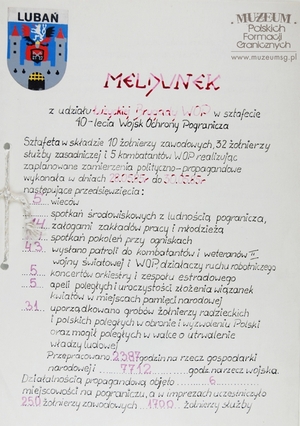 LUBAŃ
MUZEUM
Polskich
Formacji
Granicznych
www.muzeumsg.pl
MELDUNEK
z udziału Łużyckiej Brygady WOP w sztafecie
40-lecia Wojsk Ochrony Pogranicza
Sztafeta w składzie 10 żołnierzy zawodowych, 32 żołnierzy
służby zasadniczej i 5 kombatantów WOP realizując
zaplanowane zamierzenia polityczno-propagandowe
wykonała w dniach do
następujące przedsięwzięcia:
5 wieców
spotkań środowiskowych z ludnością pogranicza,
14 załogami zakładów pracy i młodzieżą
spotkań pokoleń przy ogniskach
43 wystawa patroli do kombatantów i weteranów II
wojny światowej i WOP, działaczy ruchu robotniczego
5 koncertów orkiestry i zespołu estradowego
5 apeli poległych i uroczystości złożenia wiązanek
kwiatów w miejscach pamięci narodowej
31 uporządkowano grobów żołnierzy radzieckich
i polskich poległych w obronie i wyzwoleniu Polski
oraz mogił poległych w walce o utrwalenie
władzy ludowej
Przepracowano 2387 godzin na rzecz gospodarki
narodowej i 7712 godz na rzecz wojska.
Działalnością propagandową objęto 6
miejscowości na pograniczu, a w imprezach uczestniczyło
250 żołnierzy zawodowych 1700 żołnierzy służby